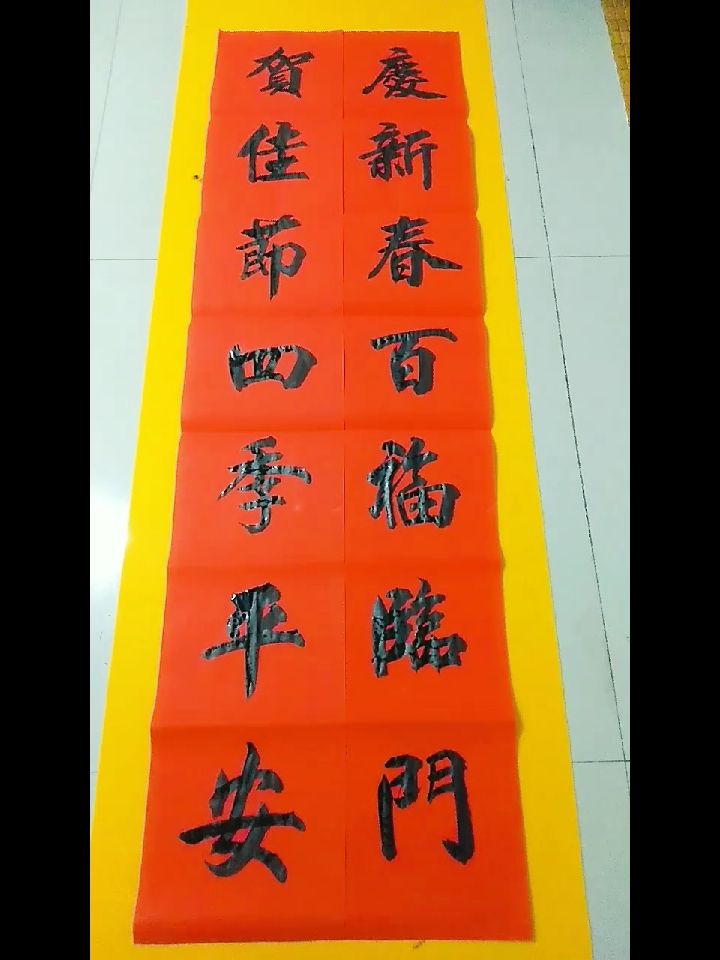 慶新春百福臨門
賀佳節四季平安